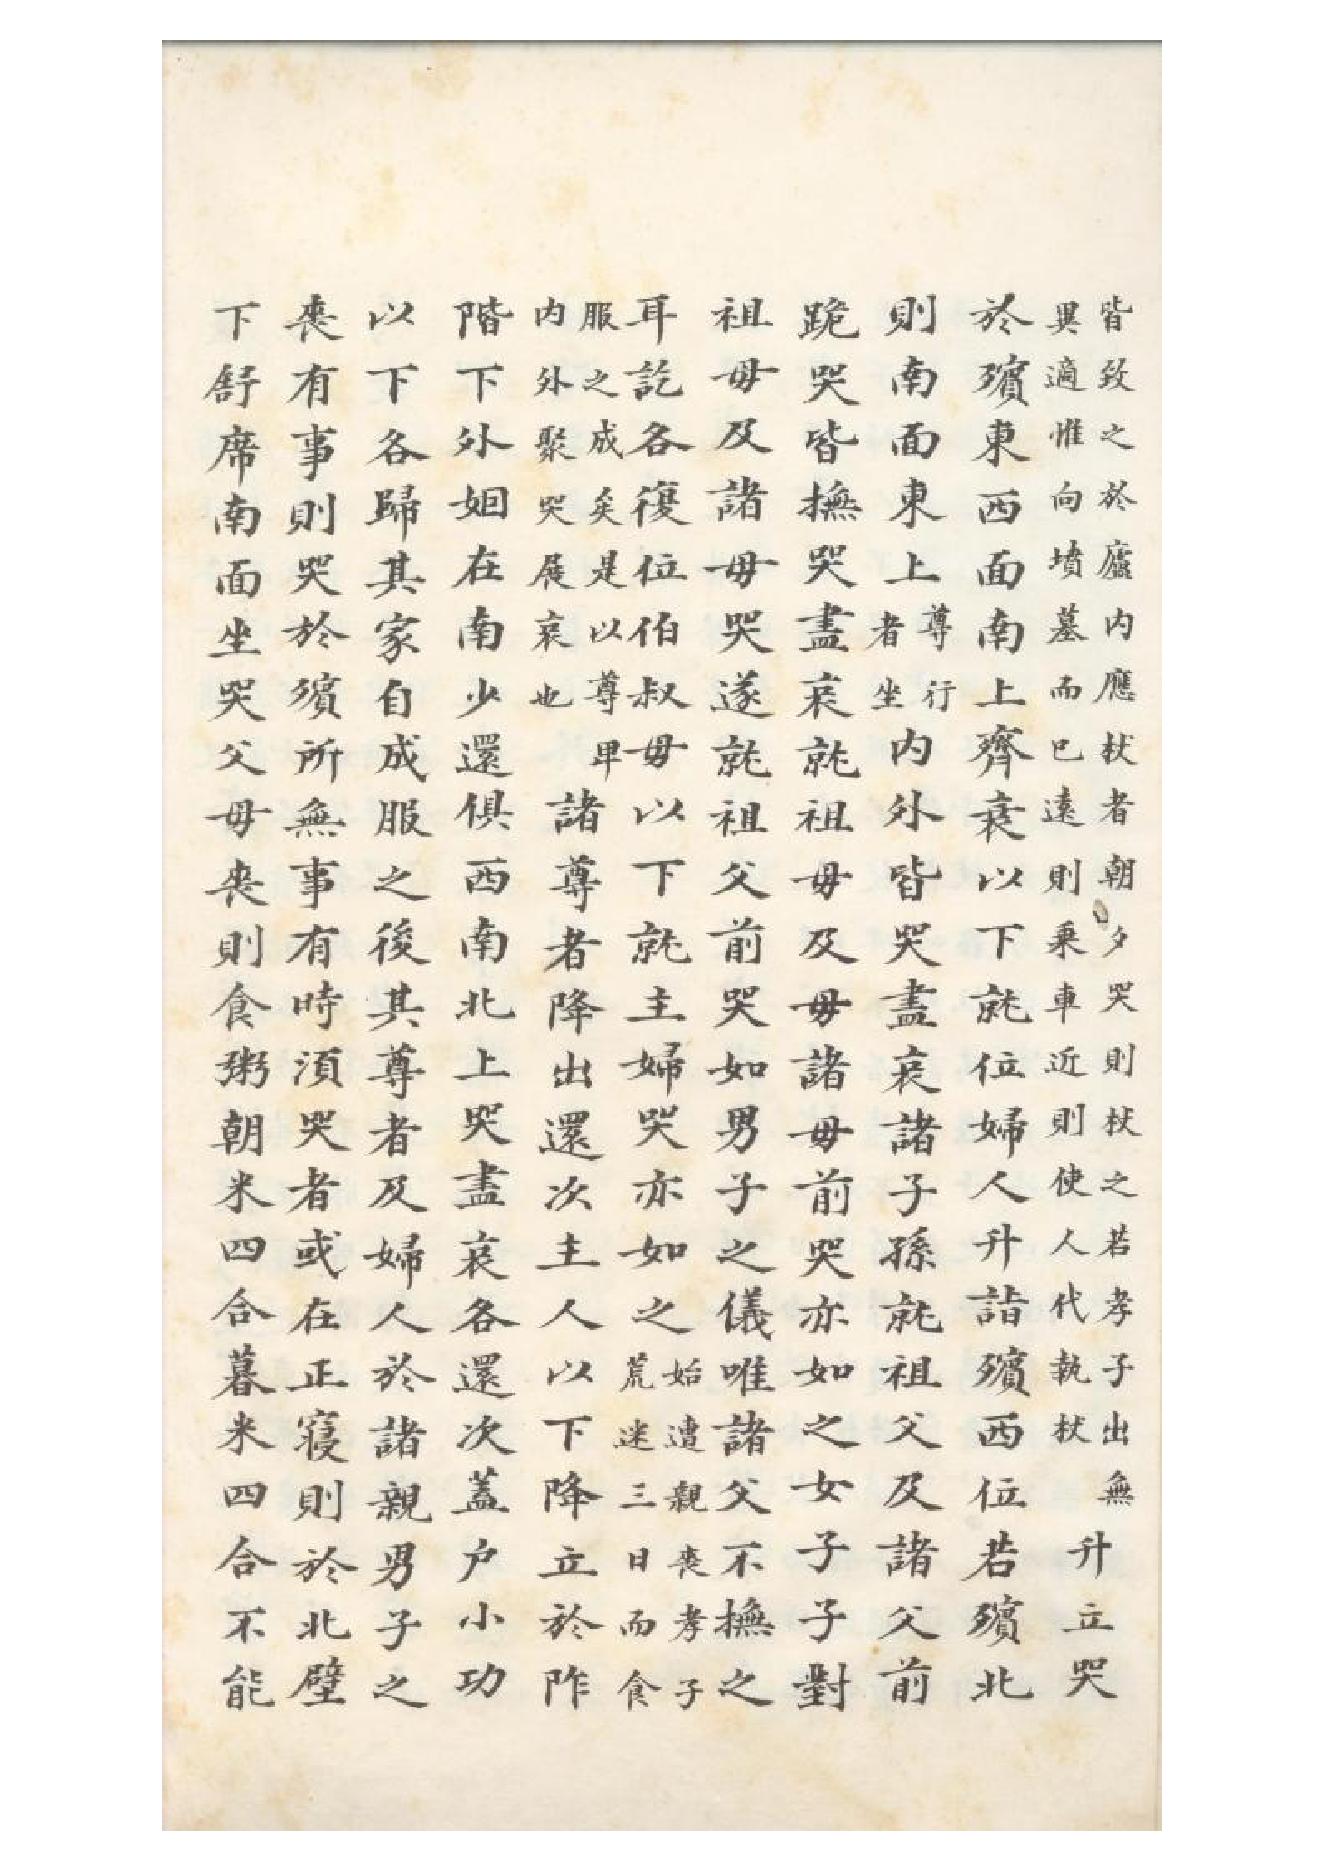 皆致之於廬內應杖者朝夕哭則杖之若孝子出無
異適惟向墳墓而已遠則乗車近則使人代執杖
升立哭
於殯東西面南上齊衰以下就位婦人升詣殯西位若殯北
則南面東上
尊行
者坐
内外皆哭盡哀諸子孫就祖父及諸父前
跪哭皆撫哭盡哀就祖母及母諸母前哭亦如之女子子對
祖母及諸母哭遂就祖父前哭如男子之儀唯諸父不撫之
耳訖各復位伯叔母以下就主婦哭亦如之
始遭親丧孝子
荒迷三日而食
服之成矣是以尊卑
内外聚哭展哀也
諸尊者降出還次主人以下降立於阼
階下外姻在南少還俱西南北上哭盡哀各還次蓋户小功
以下各歸其家自成服之後其尊者及婦人於諸親男子之
丧有事則哭於殯所無事有時須哭者或在正寢則於北壁
下舒席南面坐哭父母丧則食粥朝米四合暮米四合不能